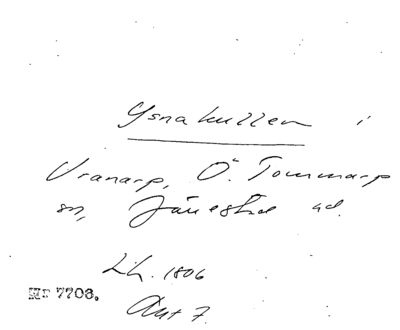 Ysnakullen i
Vranarp, Ö. Tommarp
sn, Järrestad hd.
Lh. 1806
Akt 7.
Nr 7708.